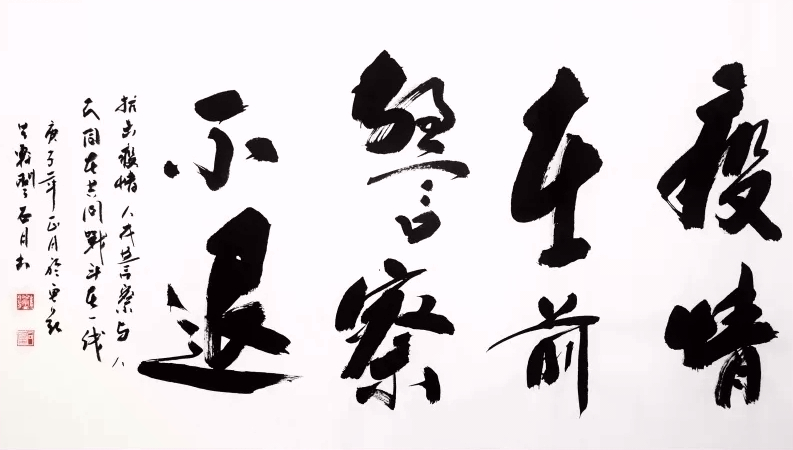 疫情
在前
警察
不退
抗击疫情人民警察与人
民同在共同战斗在一线
庚子年正月於